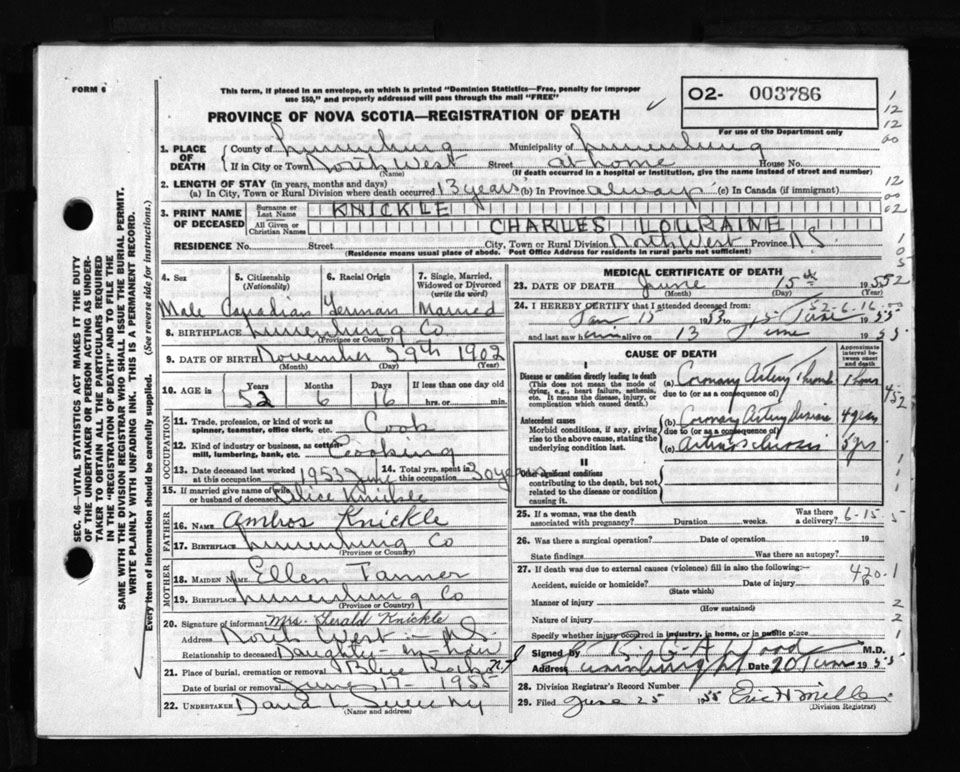 FORM 6
This form, if placed in an envelope, on which is printed "Dominion Statistics—Free, penalty for improper
use $50," and properly addressed will pass through the mail "FREE"
O2- 003786
PROVINCE OF NOVA SCOTIA—REGISTRATION OF DEATH
For use of the Department only
1. PLACE OF DEATH
County of Lunenburg Municipality of Lunenburg
If in City or Town North West Street at home House No.
(Name) (If death occurred in a hospital or institution, give the name instead of street and number)
2. LENGTH OF STAY (in years, months and days)
(a) In City, Town or Rural Division where death occurred 13 years (b) In Province always (c) In Canada (if immigrant)
3. PRINT NAME OF DECEASED
Surname or Last Name KNICKLE
All Given or Christian Names CHARLES LOURAINE
RESIDENCE No. Street City, Town or Rural Division North West Province N.S.
(Residence means usual place of abode. Post Office Address for residents in rural parts not sufficient)
4. Sex
Male
5. Citizenship (Nationality)
Canadian
6. Racial Origin
German
7. Single, Married, Widowed or Divorced (write the word)
Married
8. BIRTHPLACE Lunenburg Co
(Province or Country)
9. DATE OF BIRTH November 29th 1902
(Month) (Day) (Year)
10. AGE in
Years Months Days If less than one day old
52 6 16 hrs. or min.
OCCUPATION
11. Trade, profession, or kind of work as spinner, teamster, office clerk, etc. Cook
12. Kind of industry or business, as cotton-mill, lumbering, bank, etc. Cooking
13. Date deceased last worked at this occupation 1953 June
14. Total yrs. spent in this occupation 30 years
15. If married give name of wife or husband of deceased Alice Knickle
FATHER
16. NAME Ambros Knickle
17. BIRTHPLACE Lunenburg Co
(Province or Country)
MOTHER
18. MAIDEN NAME Ellen Tanner
19. BIRTHPLACE Lunenburg Co
(Province or Country)
20. Signature of informant Mrs. Gerald Knickle
Address North West N.S.
Relationship to deceased Daughter-in-law
21. Place of burial, cremation or removal Blue Rocks N.S.
Date of burial or removal June 17 - 1955
22. UNDERTAKER David L
(Name and address)
MEDICAL CERTIFICATE OF DEATH
23. DATE OF DEATH June 15th 1955
(Month) (Day) (Year)
24. I HEREBY CERTIFY that I attended deceased from:
Jan 15 1953 to 15 June 1955
and last saw him alive on 13 June 1955
CAUSE OF DEATH
Approximate interval between onset and death
I
Disease or condition directly leading to death
(This does not mean the mode of dying, e.g., heart failure, asthenia, etc. It means the disease, injury, or complication which caused death.)
(a) Coronary Artery Thromb 1 hour
due to (or as a consequence of)
Antecedent causes
Morbid conditions, if any, giving rise to the above cause, stating the underlying condition last.
(b) Coronary Artery disease 4 years
due to (or as a consequence of)
(c) Arteriosclerosis 5 yrs
II
Other significant conditions
contributing to the death, but not related to the disease or condition causing it.
25. If a woman, was the death associated with pregnancy? Duration weeks. Was there a delivery? 6-15
26. Was there a surgical operation? Date of operation 19
State findings Was there an autopsy?
27. If death was due to external causes (violence) fill in also the following:— 420.1
Accident, suicide or homicide? Date of injury 19
(State which)
Manner of injury
(How sustained)
Nature of injury
Specify whether injury occurred in industry, in home, or in public place
Signed by M.D.
Address Lunenburg Date 20 June 1955
28. Division Registrar's Record Number
29. Filed June 25 1955 Eric H Mills
(Division Registrar)
SEC. 46—VITAL STATISTICS ACT MAKES IT THE DUTY
OF THE UNDERTAKER OR PERSON ACTING AS UNDER-
TAKER TO OBTAIN ALL THE PARTICULARS REQUIRED
IN THE "REGISTRATION OF DEATH" AND TO FILE THE
SAME WITH THE DIVISION REGISTRAR WHO SHALL ISSUE THE BURIAL PERMIT.
WRITE PLAINLY WITH UNFADING INK. THIS IS A PERMANENT RECORD.
Every item of information should be carefully supplied. (See reverse side for instructions.)